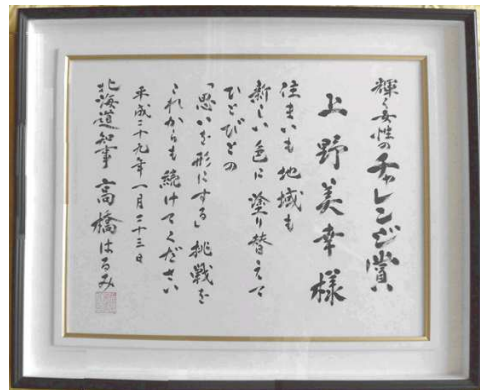 輝く女性のチャレンジ賞
上野美幸様
住まいも地域も
新しい色に塗り替えて
ひとびとの
「思いを形にする」挑戦を
これからも続けてください
平成二十九年一月二十三日
北海道知事 高橋はるみ